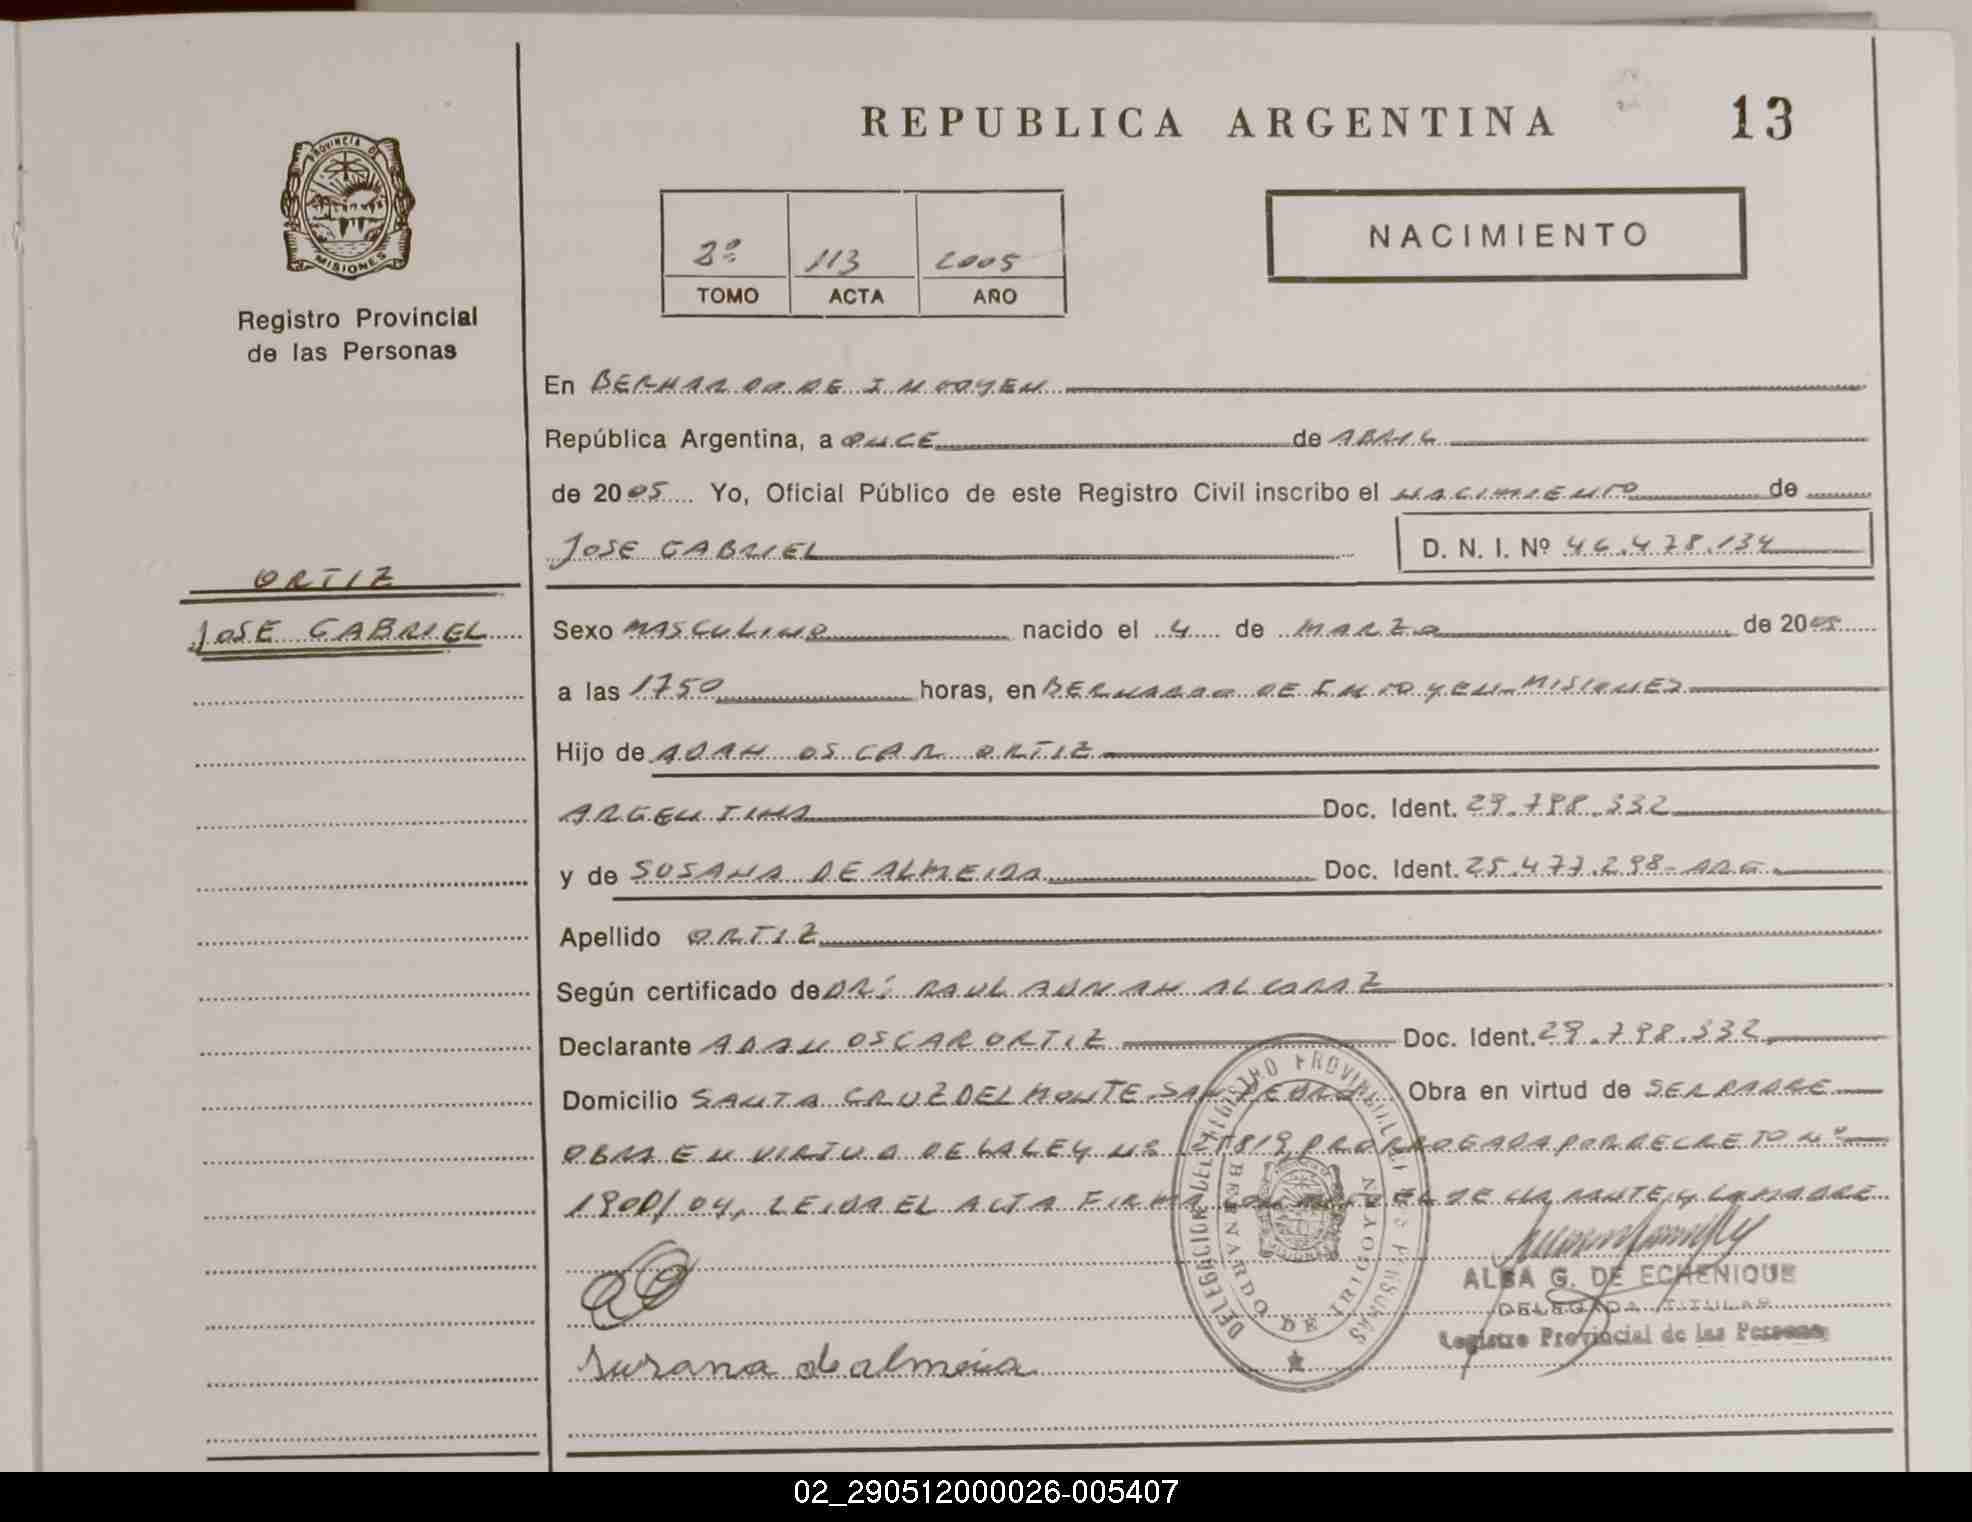 REPUBLICA ARGENTINA
13
PROVINCIA DE
MISIONES
Registro Provincial
de las Personas
2º 113 2005
TOMO ACTA AÑO
NACIMIENTO
En BERNARDO DE IRIGOYEN
República Argentina, a ONCE de ABRIL
de 2005 Yo, Oficial Público de este Registro Civil inscribo el NACIMIENTO de
JOSE GABRIEL D. N. I. Nº 46.478.134
ORTIZ
JOSE GABRIEL
Sexo MASCULINO nacido el 4 de MARZO de 2005
a las 1750 horas, en BERNARDO DE IRIGOYEN-MISIONES
Hijo de ADAN OSCAR ORTIZ
ARGENTINA Doc. Ident. 29.798.332
y de SUSANA DE ALMEIDA Doc. Ident. 25.477.298-ARG
Apellido ORTIZ
Según certificado de DR: RAUL ADRIAN ALCARAZ
Declarante ADAN OSCAR ORTIZ Doc. Ident. 29.798.332
Domicilio SANTA CRUZ DEL MONTE-SAN PEDRO Obra en virtud de SER PADRE
OBRA EN VIRTUD DE LA LEY Nº 25819, PRORROGADA POR DECRETO Nº
1900/04, LEIDA EL ACTA FIRMA CONMIGO EL DECLARANTE, y LA MADRE
DELEGACION DEL REGISTRO PROVINCIAL DE LAS PERSONAS
BERNARDO DE IRIGOYEN
MISIONES
ALBA G. DE ECHENIQUE
DELEGADA TITULAR
Registro Provincial de las Personas
Susana de almeida
02_290512000026-005407